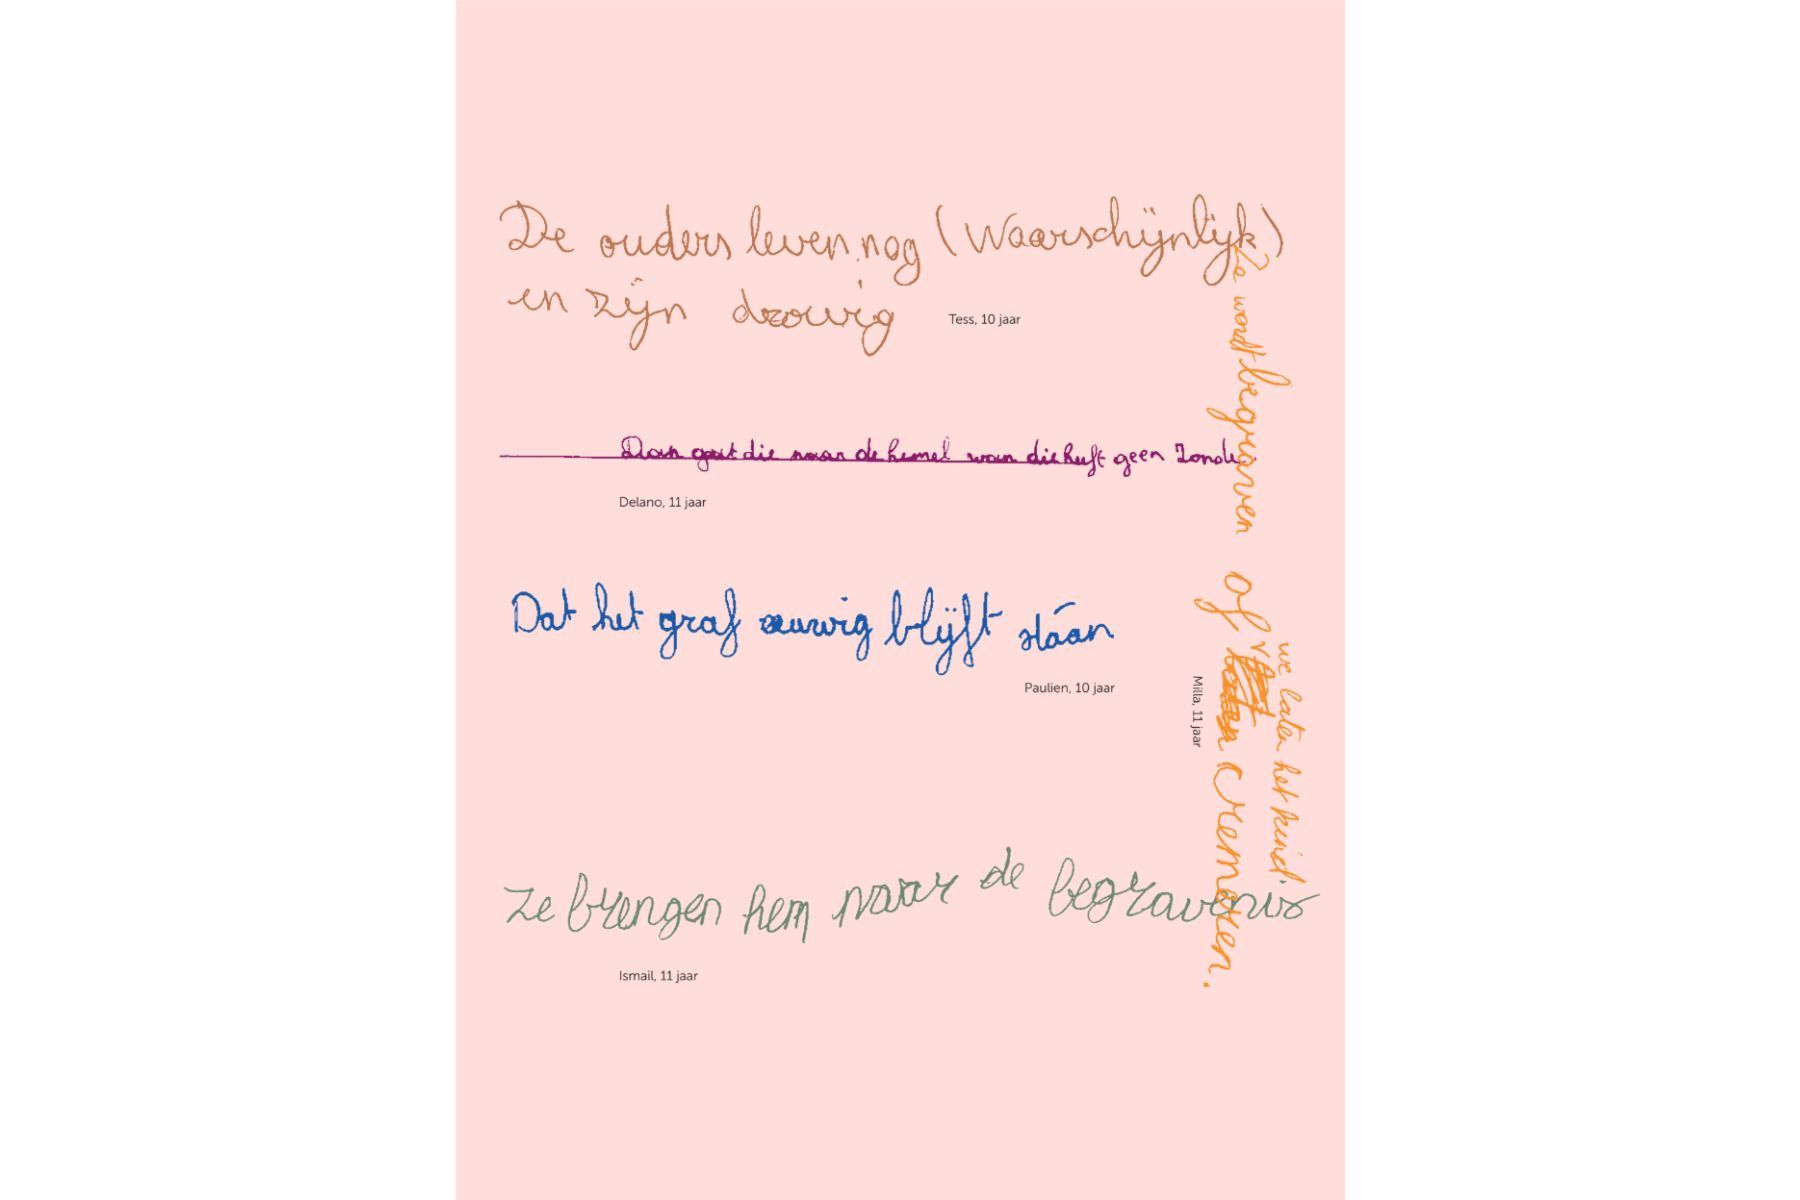 De ouders leven nog (Waarschijnlijk)
en zijn drowig
Tess, 10 jaar
Dan gaat die naar de hemel wan die heeft geen Zonde.
Delano, 11 jaar
Dat het graf eeuwig blijft stáan
Paulien, 10 jaar
Ze wordt begraven of
we laten het kind
cremeren.
Milla, 11 jaar
Ze brengen hem naar de begravenis
Ismail, 11 jaar